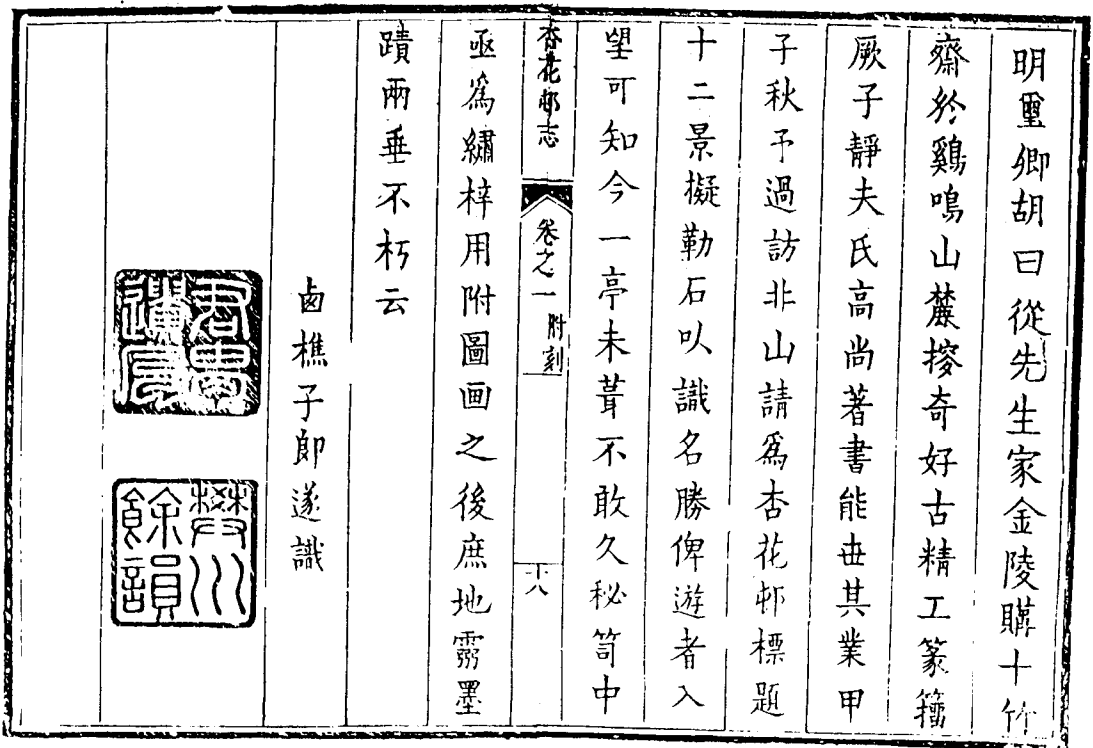 明璽卿胡曰從先生家金陵購十竹
齋於鷄鳴山麓搜奇好古精工篆籀
厥子靜夫氏高尚著書能丗其業甲
子秋予過訪非山請爲杏花邨標題
十二景擬勒石以識名勝俾遊者入
望可知今一亭未葺不敢久秘笥中
杏花邨志
卷之一
附刻
十八
亟爲繡梓用附圖画之後庶地靈墨
蹟兩垂不朽云
鹵樵子郎遂識
樊川
餘韻